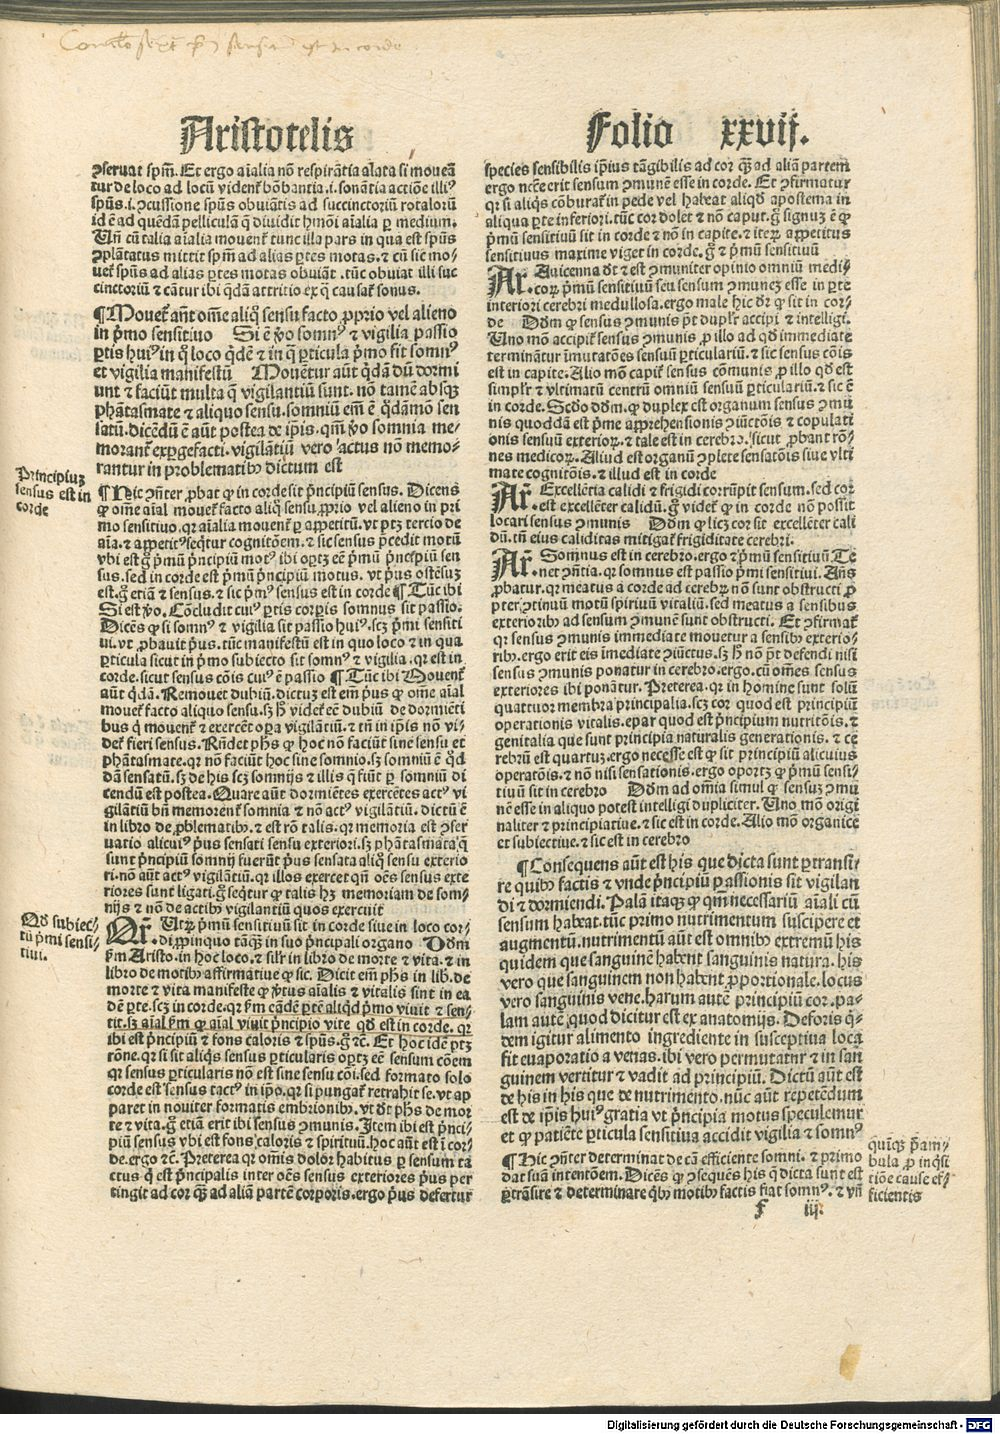 Aristotelis
Folio xxvij.
ꝯseruat spm̄. Et ergo aīalia nō respirātia alata si moueā
tur de loco ad locū vident᷑ bōbantia .i. sonātia actiōe illiꝰ
spūs .i. ꝑcussione spūs obuiātis ad succinctoriū rotaloriū
id ē ad quēdā pelliculā q̄ diuidit hmōi aīalia ꝑ medium.
Un̄ cū talia aīalia mouent᷑ tunc illa pars in qua est spūs
ꝯplātatus mittit spm̄ ad alias ꝑtes motas. ⁊ cū sic mo⸗
uet᷑ spūs ad alias ꝑtes motas obuiāt. tūc obuiat illi suc
cinctoriū ⁊ cātur ibi q̄dā attritio ex q̄ causat᷑ sonus.
¶Mouet᷑ aūt om̄e aliq̄ sensu facto ꝓprio vel alieno
in p̄mo sensitiuo Si ē ṽo somnꝰ ⁊ vigilia passio
ꝑtis huiꝰ in q̄ loco q̄dē ⁊ in q̄ ꝑticula p̄mo fit somnꝰ
et vigilia manifestū Mouētur aūt q̄dā dū dormi
unt ⁊ faciūt multa q̄ vigilantiū sunt. nō tamē absqꝫ
phātasmate ⁊ aliquo sensu. somniū em̄ ē q̄dāmō sen
satū. dicēdū ē aūt postea de ip̄is. qm̄ ṽo somnia me⸗
morant᷑ exꝑgefacti. vigilātiū vero actus nō memo⸗
rantur in problematibꝫ dictum est
Principiuꝫ
sensus est in
corde
¶Hic ꝯn̄ter ꝓbat ꝙ in corde sit p̄ncipiū sensus. Dicens
ꝙ om̄e aīal mouet᷑ facto aliq̄ sensu ꝓprio vel alieno in pri
mo sensitiuo. qꝛ aīalia mouent᷑ ꝑ appetitū. vt ptꝫ tercio de
aīa. ⁊ appetitꝰ seq̄tur cognitōem. ⁊ sic sensus p̄cedit motū
vbi est g̊ p̄mū p̄ncipiū motꝰ ibi oꝑtꝫ eē p̄mū p̄ncipiū sen
sus. sed in corde est p̄mū p̄ncipiū motus. vt p̄us ostēsuꝫ
est. g̊ etiā ⁊ sensus. ⁊ sic p̄mꝰ sensus est in corde ¶Tūc ibi
Si est ṽo. Cōcludit cuiꝰ ꝑtis corꝑis somnus sit passio.
Dicēs ꝙ si somnꝰ ⁊ vigilia sit passio huiꝰ. scꝫ p̄mi sensiti
ui. vt ꝓbauit p̄us. tūc manifestū est in quo loco ⁊ in qua
ꝑticula sicut in p̄mo subiecto sit somnꝰ ⁊ vigilia. qꝛ est in
corde. sicut sensus cōis cuiꝰ ē passio ¶Tūc ibi Mouent᷑
aūt q̄dā. Remouet dubiū. dictuꝫ est em̄ p̄us ꝙ om̄e aīal
mouet᷑ facto aliquo sensu. sꝫ h̄ videt᷑ eē dubiū de dormiēti
bus q̄ mouent᷑ ⁊ exercēt oꝑa vigilātiū. ⁊ tn̄ in ip̄is nō vi⸗
det᷑ fieri sensus. Rn̄det phs ꝙ hoc nō faciūt sine sensu et
phātasmate. qꝛ nō faciūt hoc sine somnio. sꝫ somniū ē q̄d
dā sensatū. sꝫ de his scꝫ somnijs ⁊ illis q̄ fiūt ꝑ somniū di
cendū est postea. Quare aūt dormiētes exercētes actꝰ vi
gilātiū bn̄ memorent᷑ somnia ⁊ nō actꝰ vigilātiū. dictū ē
in libro de ꝓblematibꝫ. ⁊ est rō talis. qꝛ memoria est ꝯser
uatio alicuiꝰ p̄us sensati sensu exteriori. sꝫ phātasmata q̄
sunt p̄ncipiū somnij fuerūt p̄us sensata aliq̄ sensu exterio
ri. nō aūt actꝰ vigilātiū. qꝛ illos exercet qn̄ oēs sensus exte
riores sunt ligati. g̊ seq̄tur ꝙ talis hꝫ memoriam de som⸗
nijs ⁊ nō de actibꝫ vigilantiū quos exercuit
Qd̄ subiec⸗
tū p̄mi sensi⸗
tiui.
Utrꝫ p̄mū sensitiuū sit in corde siue in loco cor⸗
di ꝓpinquo tāqꝫ in suo p̄ncipali organo Dd̄m
ẜm Aristo. in hoc loco. ⁊ silr̄ in libro de morte ⁊ vita. ⁊ in
libro de motibꝫ affirmatiue ꝙ sic. Dicit em̄ phs in lib. de
morte ⁊ vita manifeste ꝙ ꝟtus aīalis ⁊ vitalis sint in ea
dē ꝑte. scꝫ in corde. qꝛ ẜm eādē ꝑtē aliqd̄ p̄mo viuit ⁊ sen⸗
tit. sꝫ aīal ẜm ꝙ aīal viuit p̄ncipio vite qd̄ est in corde. qꝛ
ibi est p̄ncipiū ⁊ fons caloris ⁊ spūs. g̊ ⁊c. Et hoc idē ptꝫ
rōne. qꝛ si sit aliq̄s sensus ꝑticularis oꝑtꝫ eē sensum cōem
qꝛ sensus ꝑticularis nō est sine sensu cōi. sed formato solo
corde est sensus tactꝰ in ip̄o. qꝛ si pungat᷑ retrahit se. vt ap
paret in nouiter formatis embrionibꝫ. vt dt̄ phs de mor
te ⁊ vita. g̊ etiā erit ibi sensus ꝯmunis. Item ibi est p̄nci⸗
piū sensus vbi est fons caloris ⁊ spirituū. hoc aūt est ī cor⸗
de. ergo ⁊c. Preterea qꝛ om̄is dolor habitus ꝑ sensum ta
ctus q̄ est p̄ncipalis inter oēs sensus exteriores p̄us per
tingit ad cor qꝫ ad aliā partē corporis. ergo p̄us defertur
species sensibilis ip̄ius tāgibilis ad cor qꝫ ad aliā partem
ergo nc̄ce erit sensum ꝯmunē esse in corde. Et ꝯfirmatur
qꝛ si aliq̄s cōburat᷑ in pede vel habeat aliqd̄ apostema in
aliqua ꝑte inferiori. tūc cor dolet ⁊ nō caput. g̊ signuꝫ ē ꝙ
p̄mū sensitiuū sit in corde ⁊ nō in capite. ⁊ iteꝝ appetitus
sensitiuus maxime viget in corde. g̊ ⁊ p̄mū sensitiuū
Ar. Auicenna dt̄ ⁊ est ꝯmuniter opinio omniū medi⸗
coꝝ p̄mū sensitiuū seu sensum ꝯmuneꝫ esse in ꝑte
interiori cerebri medullosa. ergo male hic dr̄ ꝙ sit in cor⸗
de Dd̄m ꝙ sensus ꝯmunis pt̄ duplr̄ accipi ⁊ intelligi.
Uno mō accipit᷑ sensus ꝯmunis ꝓ illo ad qd̄ immediate
terminātur īmutatōes sensuū ꝑticulariū. ⁊ sic sensus cōis
est in capite. Alio mō capit᷑ sensus cōmunis ꝓ illo qd̄ est
simplr̄ ⁊ vltimatū centrū omniū sensuū ꝑticulariū. ⁊ sic ē
in corde. Scd̄o dd̄m. ꝙ duplex est organum sensus ꝯmu
nis quoddā est p̄me apprehensionis ꝯiūctōis ⁊ copulati
onis sensuū exterioꝝ. ⁊ tale est in cerebro. sicut ꝓbant rō⸗
nes medicoꝝ. Aliud est organū ꝯplete sensatōis siue vlti
mate cognitōis. ⁊ illud est in corde
Ar. Excellētia calidi ⁊ frigidi corrūpit sensum. sed cor
est excellēter calidū. g̊ videt᷑ ꝙ in corde nō possit
locari sensus ꝯmunis Dd̄m ꝙ licꝫ cor sit excellēter cali
dū. tn̄ eius caliditas mitigat᷑ frigiditate cerebri.
Ar. Somnus est in cerebro. ergo ⁊ p̄mū sensitiuū Te
net ꝯn̄tia. qꝛ somnus est passio p̄mi sensitiui. Ans̄
ꝓbatur. qꝛ meatus a corde ad cerebrꝫ nō sunt obstructi ꝓ
pter ꝯtinuū motū spirituū vitaliū. sed meatus a sensibus
exterioribꝫ ad sensum ꝯmunē sunt obstructi. Et ꝯfirmat᷑
qꝛ sensus ꝯmunis immediate mouetur a sensibꝫ exterio⸗
ribꝫ. ergo erit eis imediate ꝯiūctus. sꝫ h̄ nō pt̄ defendi nisi
sensus ꝯmunis ponatur in cerebro. ergo. cū om̄es sensus
exteriores ibi ponātur. Preterea. qꝛ in homine sunt solū
quattuor membra principalia. scꝫ cor quod est principiū
operationis vitalis. epar quod est p̄ncipium nutritōis. ⁊
genitalia que sunt principia naturalis generationis. ⁊ ce
rebrū est quartuꝫ. ergo necesse est ꝙ sit principiū alicuius
operatōis. ⁊ non nisi sensationis. ergo oportꝫ ꝙ p̄mū sensi⸗
tiuū sit in cerebro Dd̄m ad om̄ia simul ꝙ sensuꝫ ꝯmu
nē esse in aliquo potest intelligi dupliciter. Uno mō origi
naliter ⁊ principiatiue. ⁊ sic est in corde. Alio mō organice
et subiectiue. ⁊ sic est in cerebro
¶Consequens aūt est his que dicta sunt ꝑtransi⸗
re quibꝫ factis ⁊ vnde p̄ncipiū passionis sit vigilan
di ⁊ dormiendi. Palā itaqꝫ ꝙ qm̄ necessariū aīali cū
sensum habeat. tūc primo nutrimentum suscipere et
augmentū. nutrimentū aūt est omnibꝫ extremū his
quidem que sanguinē habent sanguinis natura. his
vero que sanguinem non habent ꝓportionale. locus
vero sanguinis vene. harum autē principiū cor. pa⸗
lam autē quod dicitur est ex anatomijs. Deforis q̄⸗
dem igitur alimento ingrediente in susceptiua loca
fit euaporatio a venas. ibi vero permutatur ⁊ in san
guinem vertitur ⁊ vadit ad principiū. Dictū aūt est
de his in his que de nutrimento. nūc aūt repetēdum
est de ip̄is huiꝰ gratia vt p̄ncipia motus speculemur
et ꝙ patiēte ꝑticula sensitiua accidit vigilia ⁊ somnꝰ
¶Hic ꝯn̄ter determinat de cā efficiente somni. ⁊ primo
dat suā intentōem. Dicēs ꝙ ꝯsequēs his q̄ dicta sunt est
ꝑtrāsire ⁊ determinare q̄bꝫ motibꝫ factis fiat somnꝰ. ⁊ vn̄
quinqꝫ p̄am⸗
bula ꝓ inq̄si
tiōe cause ef⸗
ficientis
f iij.
Digitalisierung gefördert durch die Deutsche Forschungsgemeinschaft - DFG